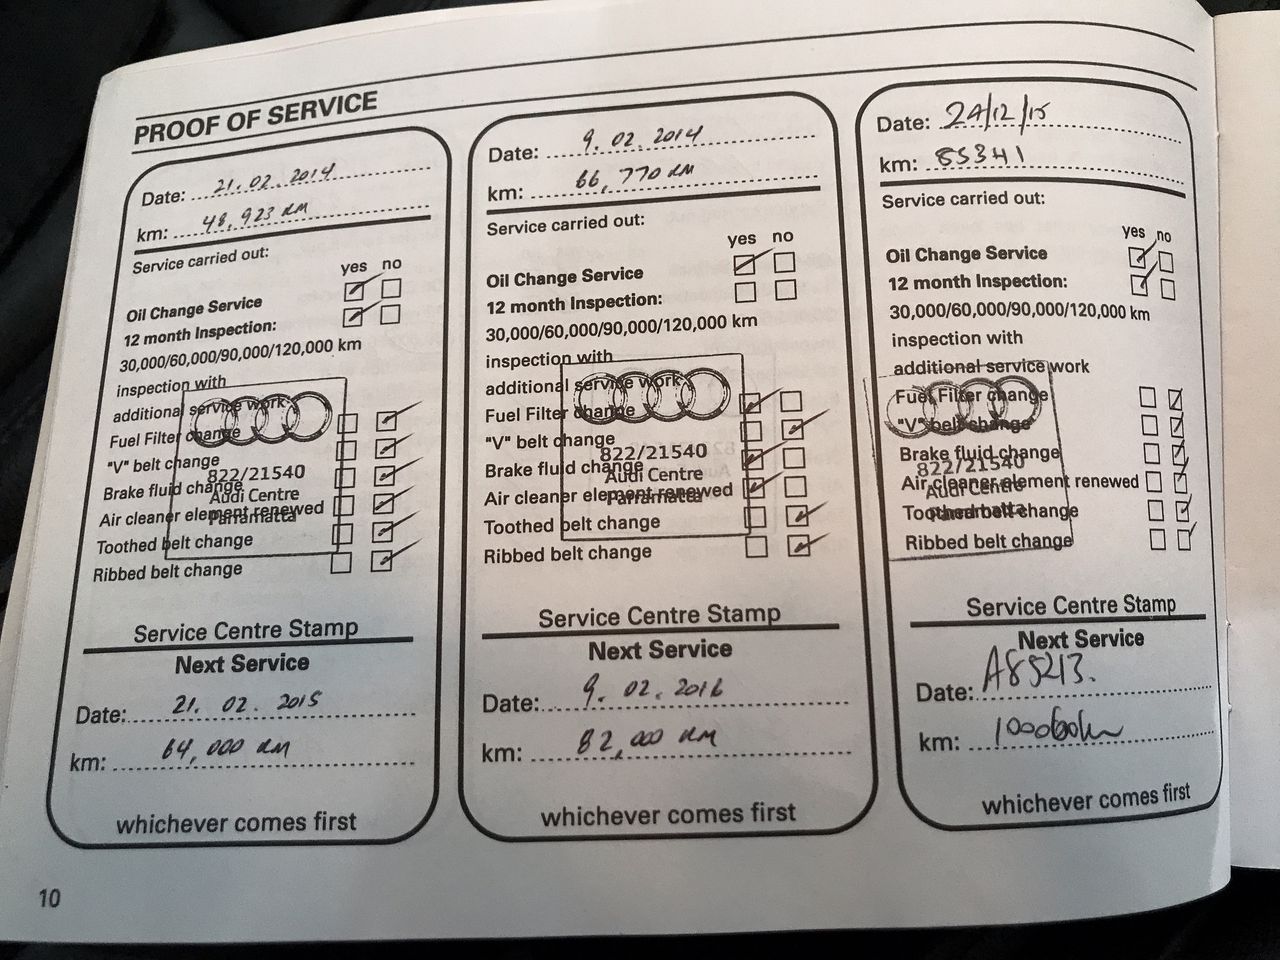 PROOF OF SERVICE
Date: 21.02.2014
km: 48,923 KM
Service carried out:
yes no
Oil Change Service
12 month Inspection:
30,000/60,000/90,000/120,000 km
inspection with
additional service work
Fuel Filter change
"V" belt change
822/21540
Brake fluid change
Audi Centre
Air cleaner element renewed
Parramatta
Toothed belt change
Ribbed belt change
Service Centre Stamp
Next Service
Date: 21. 02. 2015
km: 64,000 KM
whichever comes first
Date: 9. 02. 2014
km: 66,770 KM
Service carried out:
yes no
Oil Change Service
12 month Inspection:
30,000/60,000/90,000/120,000 km
inspection with
additional service work
Fuel Filter change
"V" belt change
822/21540
Brake fluid change
Audi Centre
Air cleaner element renewed
Parramatta
Toothed belt change
Ribbed belt change
Service Centre Stamp
Next Service
Date: 9. 02. 2016
km: 82,000 KM
whichever comes first
Date: 24/12/15
km: 85341
Service carried out:
yes no
Oil Change Service
12 month Inspection:
30,000/60,000/90,000/120,000 km
inspection with
additional service work
Fuel Filter change
"V" belt change
Brake fluid change
822/21540
Air cleaner element renewed
Audi Centre
Toothed belt change
Parramatta
Ribbed belt change
Service Centre Stamp
Next Service
Date: A85213.
km:
whichever comes first
10